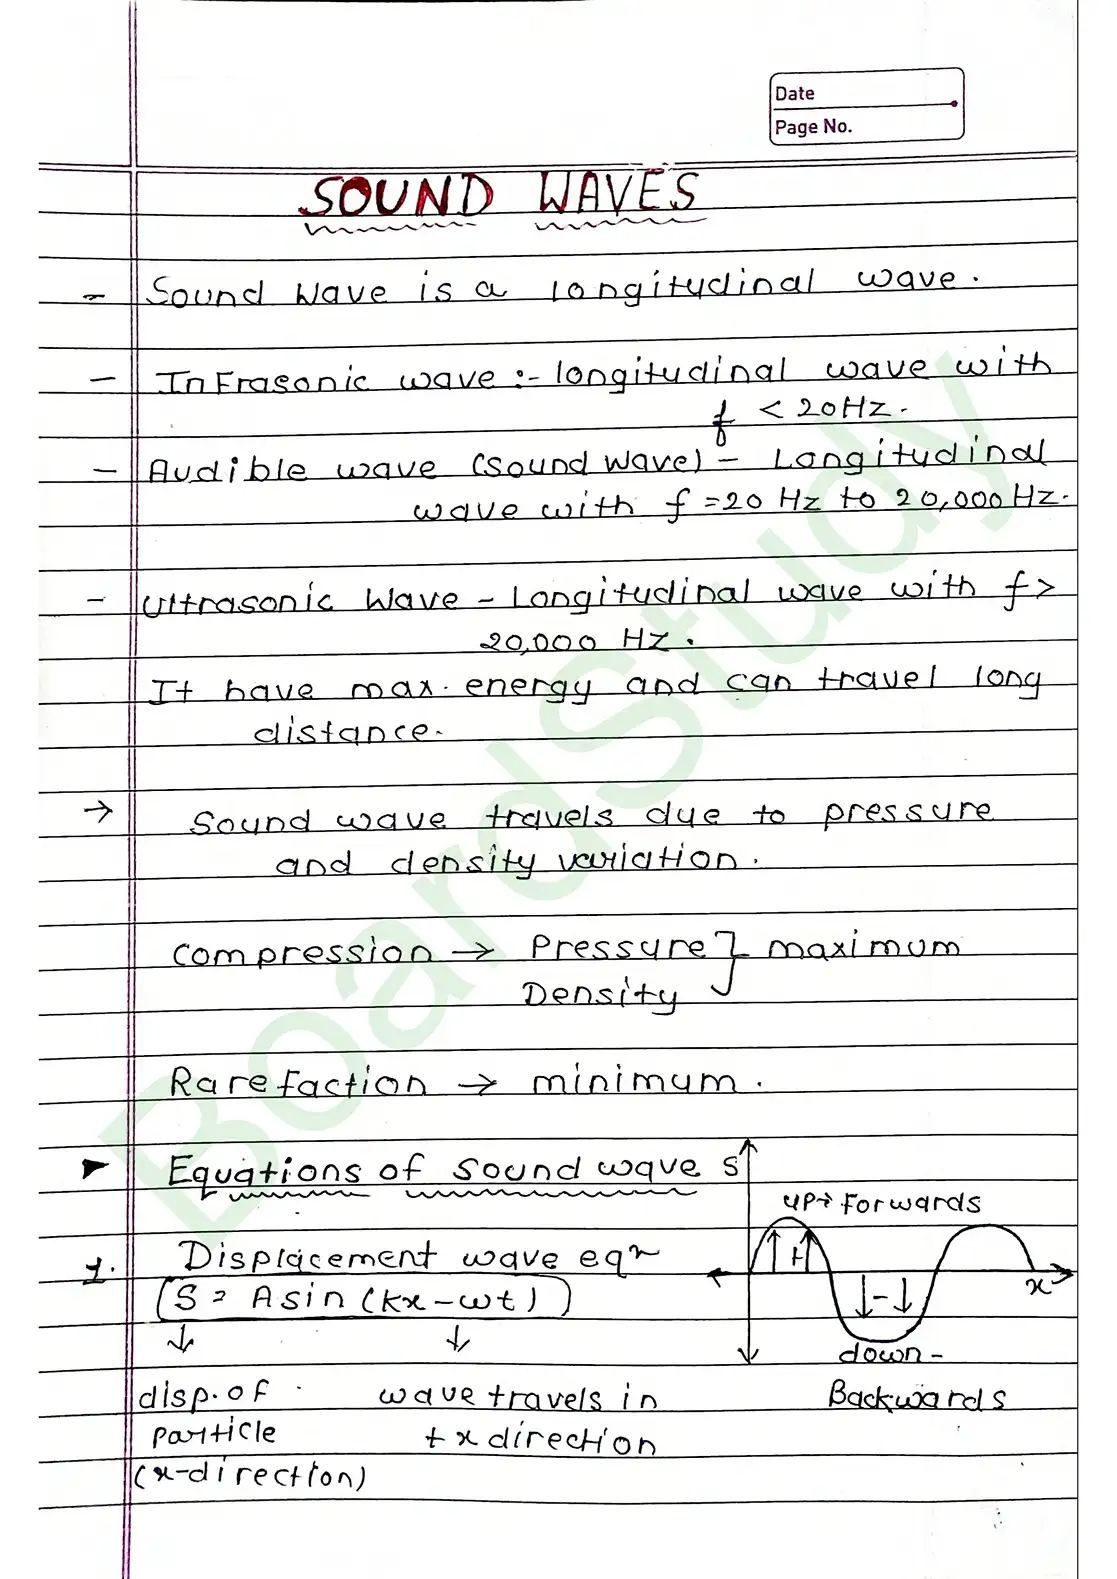 Date
Page No.
SOUND WAVES
- Sound Wave is a longitudinal wave.
- InFrasonic wave :- longitudinal wave with
f < 20Hz.
- Audible wave (sound wave) - Longitudinal
wave with f = 20 Hz to 20,000 Hz.
- Ultrasonic Wave - Longitudinal wave with f >
20,000 Hz.
It have max. energy and can travel long
distance.
→ Sound wave travels due to pressure
and density variation.
compression → Pressure } maximum
Density
Rarefaction → minimum.
► Equations of sound wave
S
up → Forwards
1. Displacement wave eqn
S = A sin (kx - wt)
+
-
x
down -
Backwards
↓ ↓
disp. of wave travels in
particle + x direction
(x-direction)
BoardStudy